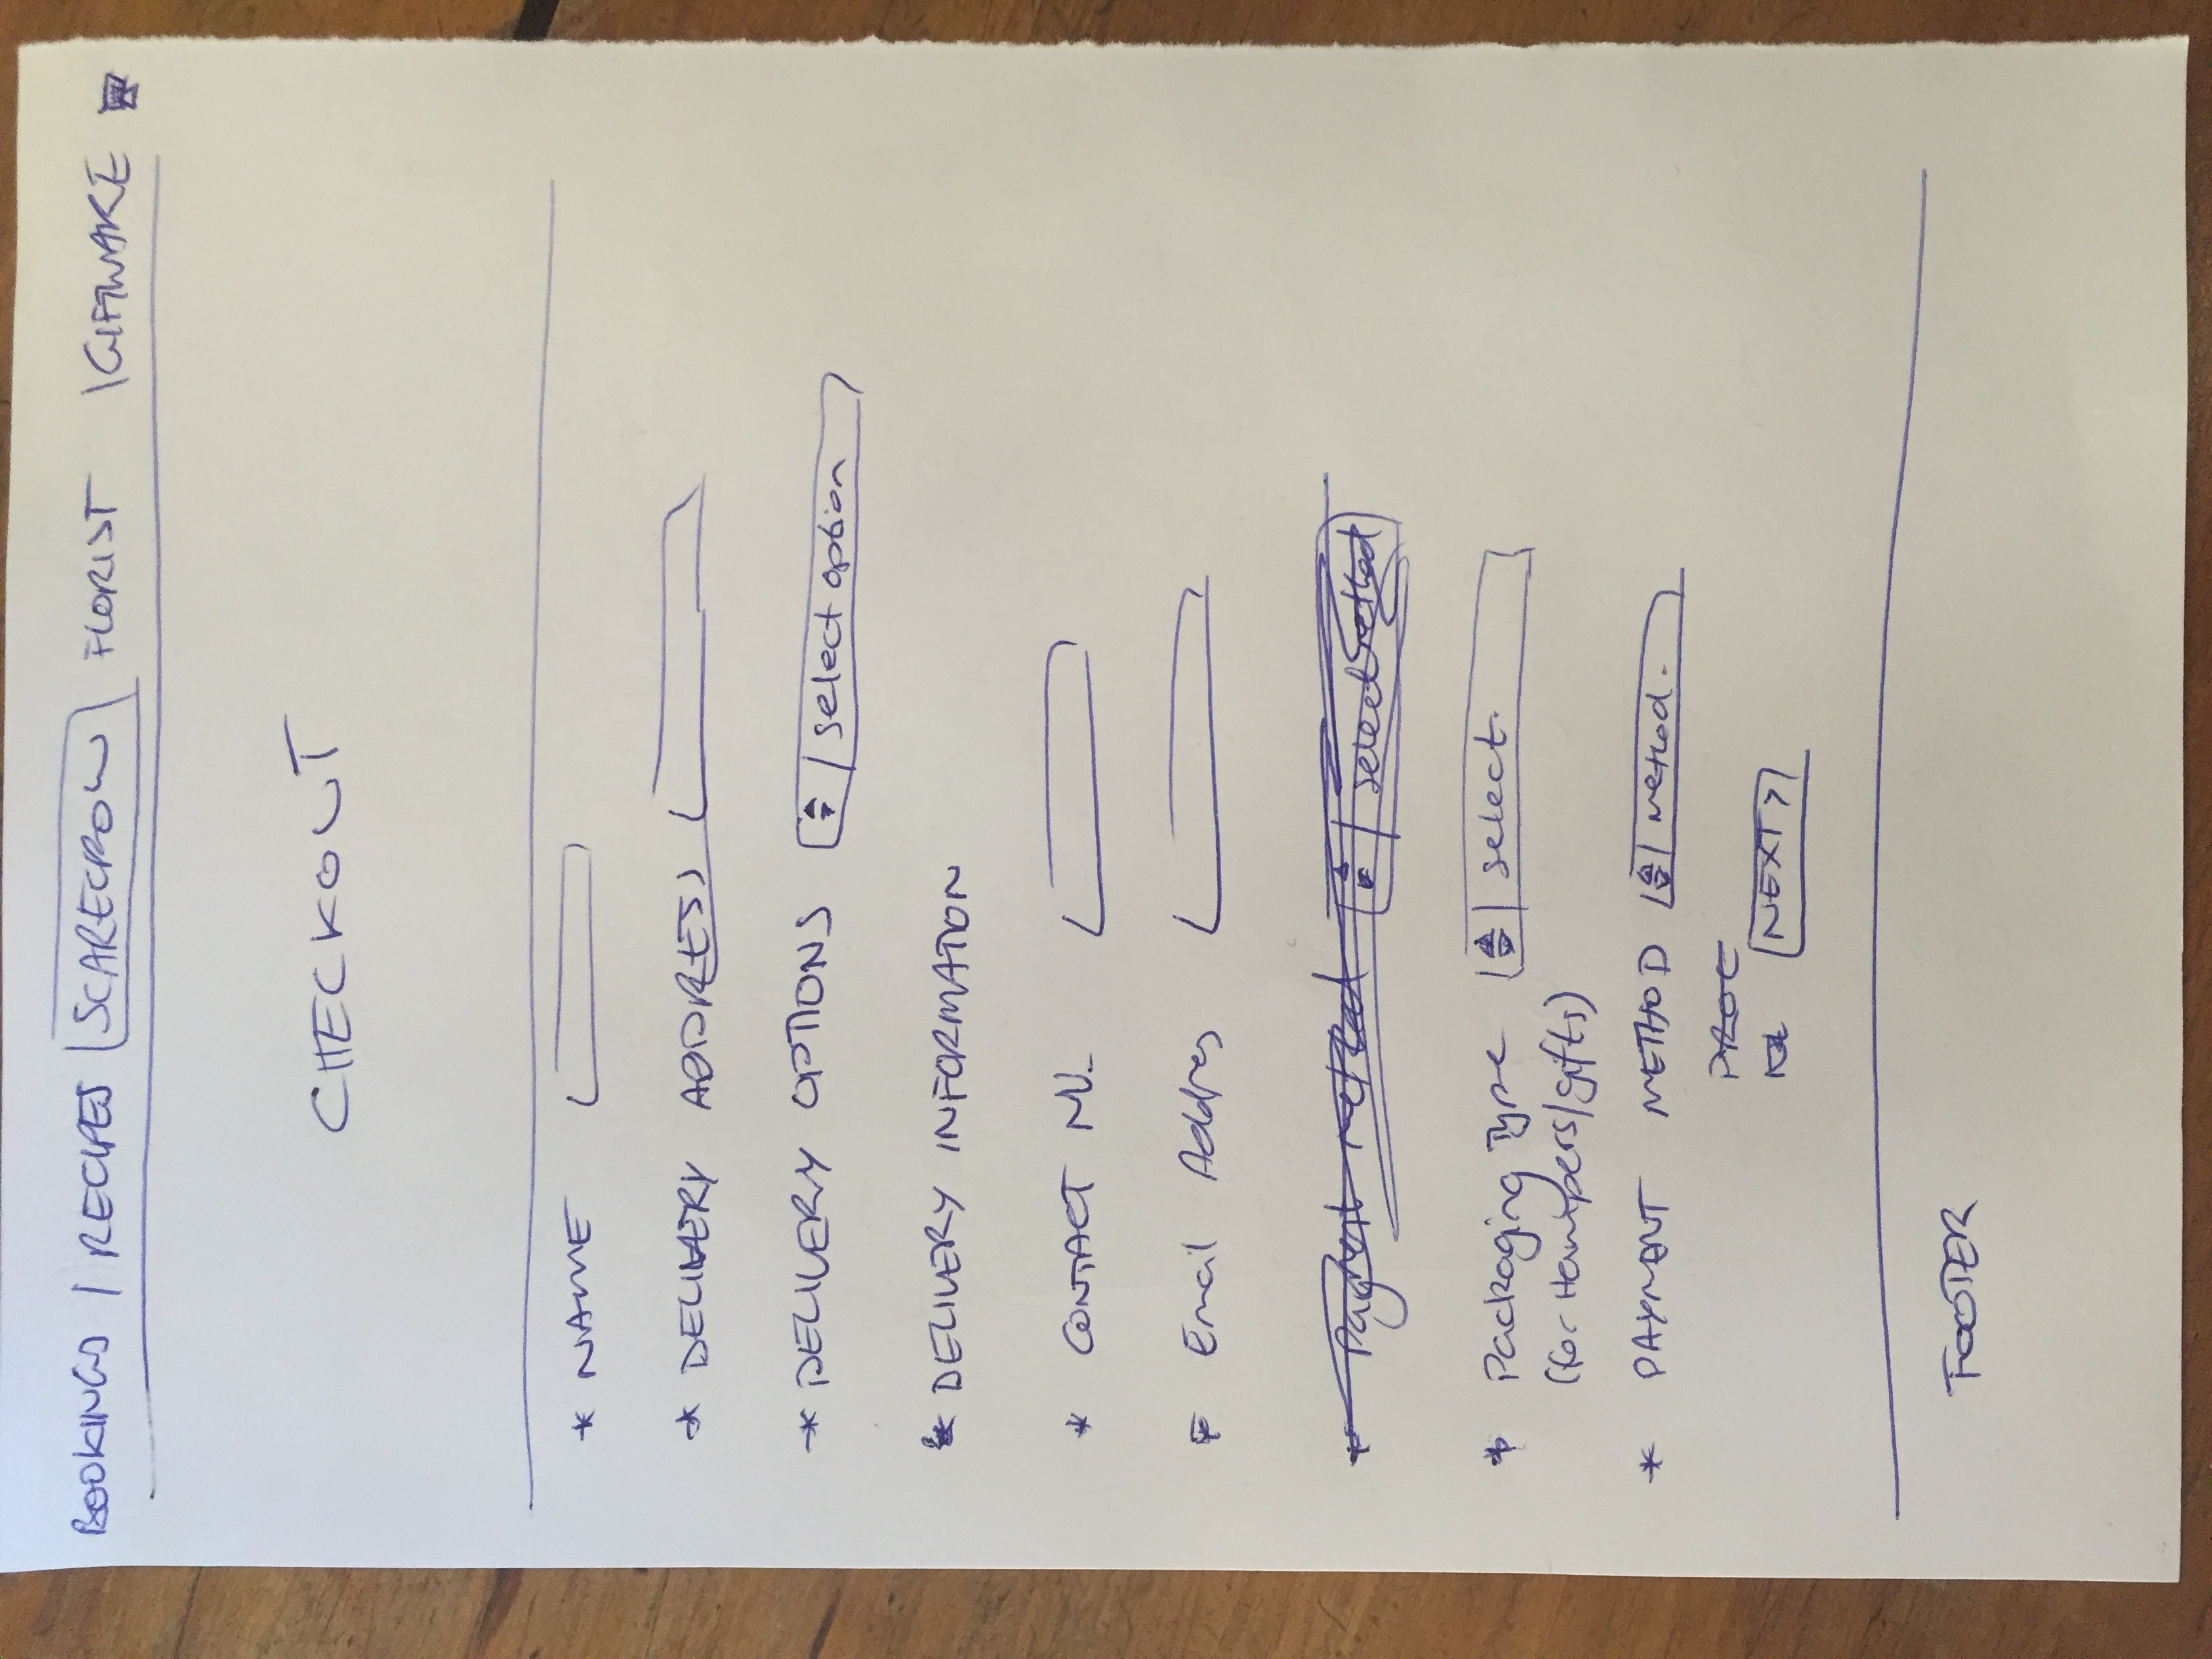 BOOKINGS | RECIPES SCARECROW FLORIST | GIFTWARE
CHECKOUT
* NAME
* DELIVERY ADDRESS
* DELIVERY OPTIONS | select option
* DELIVERY INFORMATION
* CONTACT NU.
* Email Address
* Payment method | select method
* Packaging Type | select.
(for Hampers/gifts)
* PAYMENT METHOD | method.
PROC
NEXT >
FOOTER